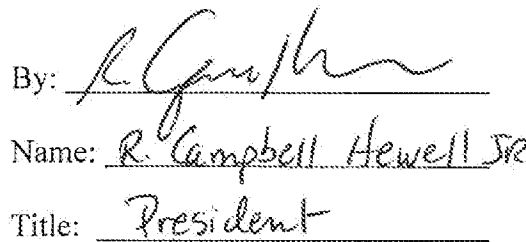 By:
Name: R. Campbell Hewell JR
Title: President